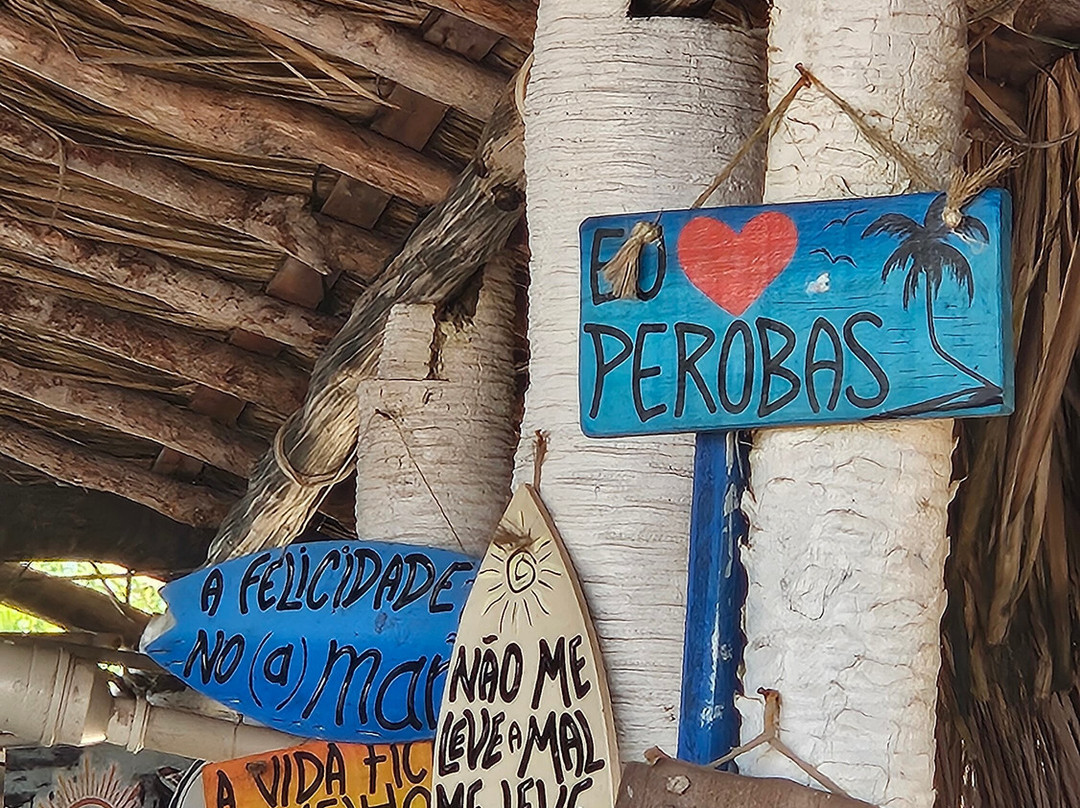 EU
PEROBAS
A FELICIDADE
NO (a) mar
NÃO ME
LEVE A MAL
ME LEVE
A VIDA FIC